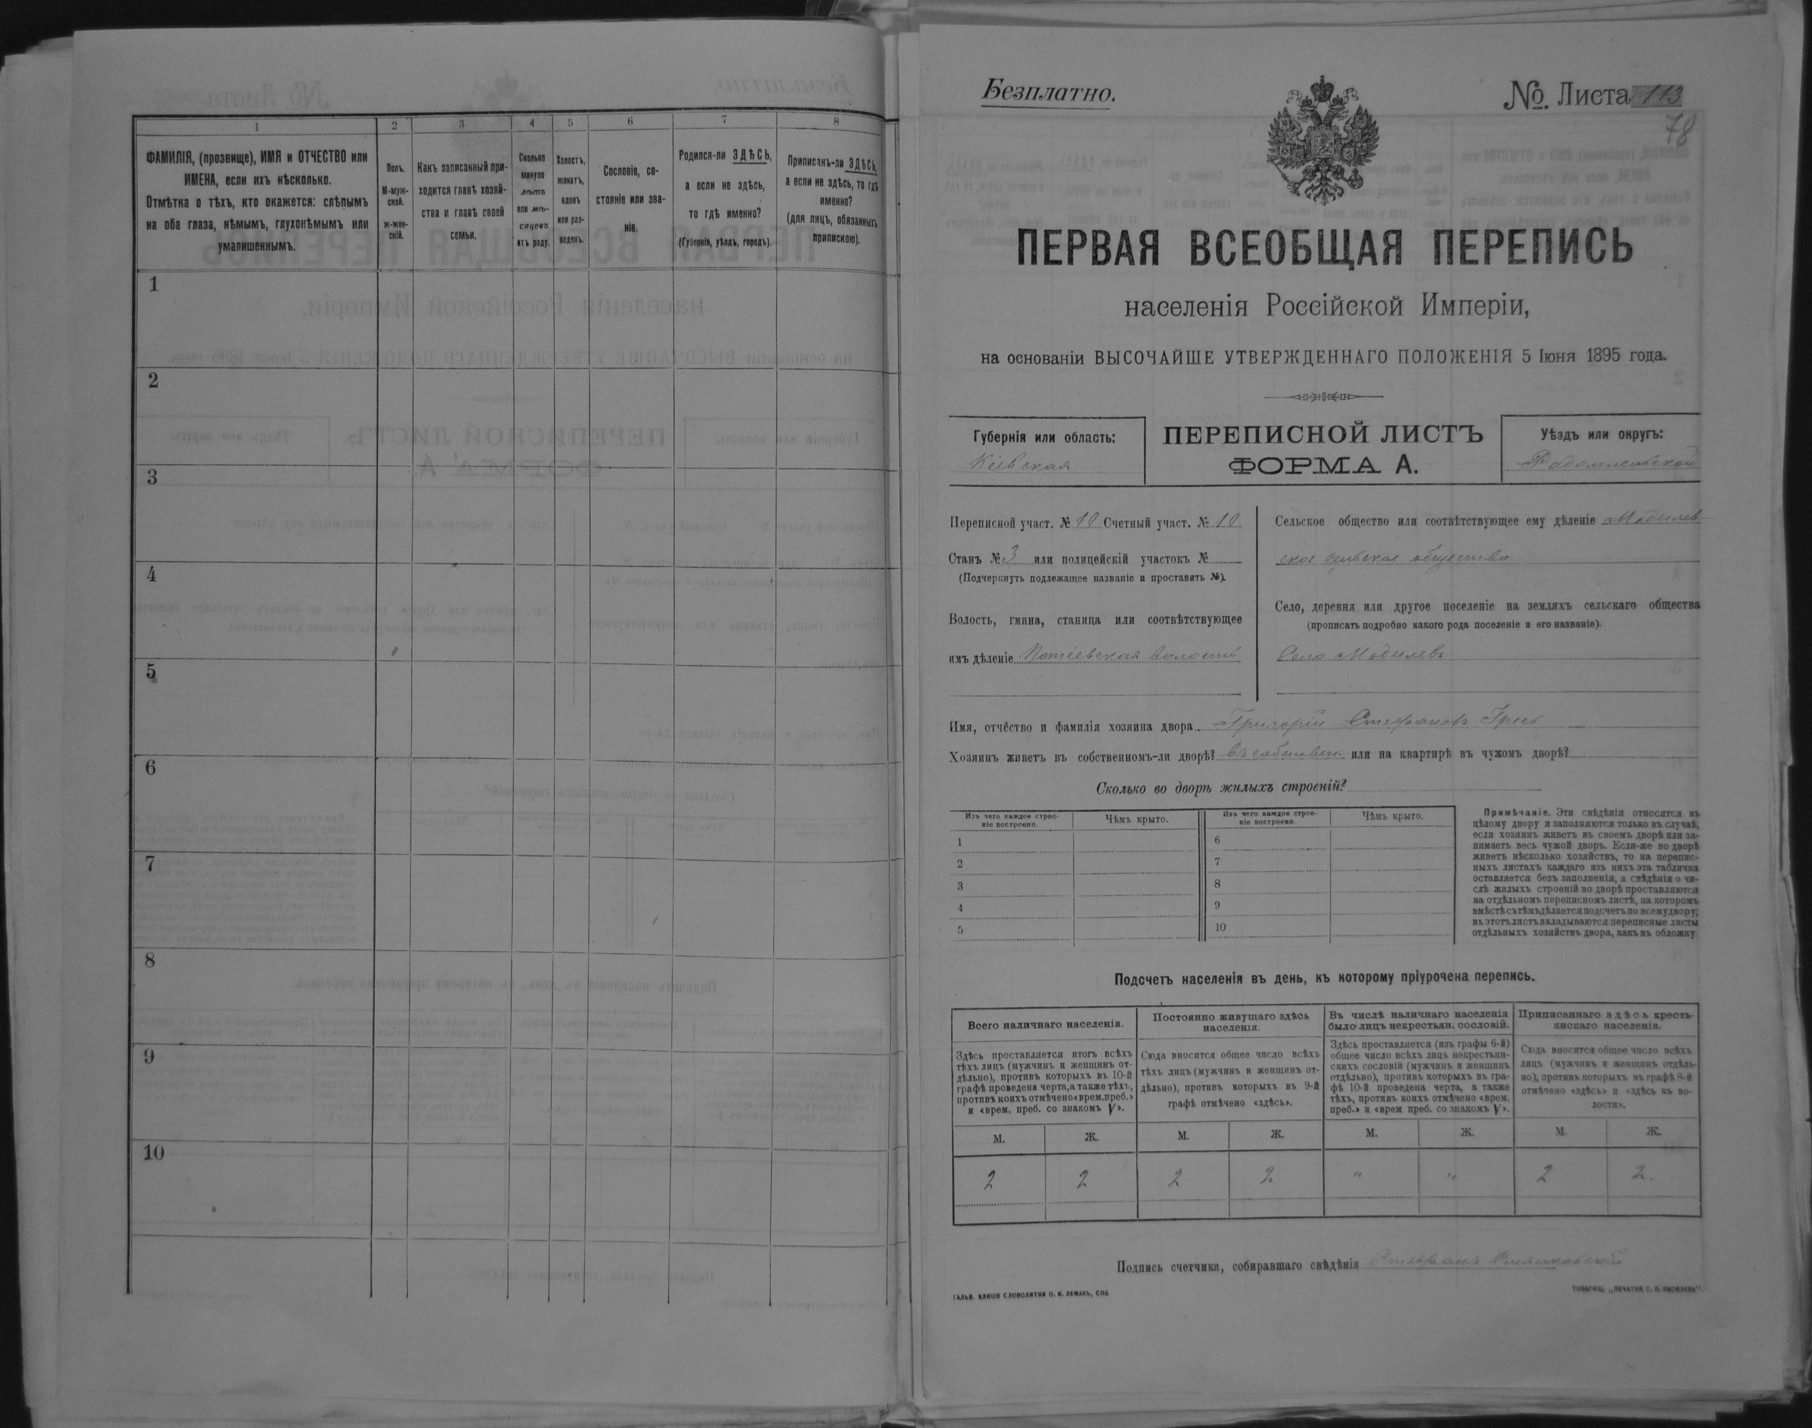 1
2
3
4
5
6
7
8
ФАМИЛІЯ, (прозвище), ИМЯ и ОТЧЕСТВО или
ИМЕНА, если ихъ нѣсколько.
Отмѣтка о тѣхъ, кто окажется: слѣпымъ
на оба глаза, нѣмымъ, глухонѣмымъ или
умалишеннымъ.
Полъ.
М-муж-
ской.
ж-жен-
скій.
Какъ записанный при-
ходится главѣ хозяй-
ства и главѣ своей
семьи.
Сколько
минуло
лѣтъ
или мѣ-
сяцевъ
отъ роду.
Холостъ,
женатъ,
вдовъ
или раз-
веденъ.
Сословіе, со-
стояніе или зва-
ніе.
Родился-ли ЗДѢСЬ,
а если не здѣсь,
то гдѣ именно?
(Губернія, уѣздъ, городъ).
Приписанъ-ли ЗДѢСЬ,
а если не здѣсь, то гдѣ
именно?
(для лицъ, обязанныхъ
припискою).
1
2
3
4
5
6
7
8
9
10
Безплатно.
№ Листа 113
78
ПЕРВАЯ ВСЕОБЩАЯ ПЕРЕПИСЬ
населенія Россійской Имперіи,
на основаніи ВЫСОЧАЙШЕ УТВЕРЖДЕННАГО ПОЛОЖЕНІЯ 5 Іюня 1895 года.
Губернія или область:
Кіевская
ПЕРЕПИСНОЙ ЛИСТЪ
ФОРМА А.
Уѣздъ или округъ:
Радомысльскій
Переписной участ. № 10 Счетный участ. № 10
Станъ № 3 или полицейскій участокъ №
(Подчеркнуть подлежащее названіе и проставить №).
Волость, гмина, станица или соотвѣтствующее
имъ дѣленіе Потіевская волость
Сельское общество или соотвѣтствующее ему дѣленіе Модилев
ское сельское общество
Село, деревня или другое поселеніе на земляхъ сельскаго общества
(прописать подробно какого рода поселеніе и его названіе).
Село Модилевъ
Имя, отчество и фамилія хозяина двора Григорій Стефановъ
Хозяинъ живетъ въ собственномъ-ли дворѣ? въ собствен. или на квартирѣ въ чужомъ дворѣ?
Сколько во дворѣ жилыхъ строеній?
Изъ чего каждое строе-
ніе построено.
Чѣмъ крыто.
Изъ чего каждое строе-
ніе построено.
Чѣмъ крыто.
1
2
3
4
5
6
7
8
9
10
Примѣчаніе. Эти свѣдѣнія относятся къ
цѣлому двору и заполняются только въ случаѣ,
если хозяинъ живетъ въ своемъ дворѣ или за-
нимаетъ весь чужой дворъ. Если-же во дворѣ
живетъ нѣсколько хозяйствъ, то на перепис-
ныхъ листахъ каждаго изъ нихъ эта табличка
оставляется безъ заполненія, а свѣдѣнія о чи-
слѣ жилыхъ строеній во дворѣ проставляются
на отдѣльномъ переписномъ листѣ, на которомъ
вмѣстѣ съ тѣмъ дѣлается подсчетъ по всему двору;
въ этотъ листъ вкладываются переписные листы
отдѣльныхъ хозяйствъ двора, какъ въ обложку.
Подсчетъ населенія въ день, къ которому пріурочена перепись.
Всего наличнаго населенія.
Здѣсь проставляется итогъ всѣхъ
тѣхъ лицъ (мужчинъ и женщинъ от-
дѣльно), противъ которыхъ въ 10-й
графѣ проведена черта, а также тѣхъ,
противъ коихъ отмѣчено «врем. преб.»
и «врем. преб. со знакомъ V».
Постоянно живущаго здѣсь
населенія.
Сюда вносится общее число всѣхъ
тѣхъ лицъ (мужчинъ и женщинъ от-
дѣльно), противъ которыхъ въ 9-й
графѣ отмѣчено «здѣсь».
Въ числѣ наличнаго населенія
было лицъ некрестьян. сословій.
Здѣсь проставляется (изъ графы 6-й)
общее число всѣхъ лицъ некрестьян-
скихъ сословій (мужчинъ и женщинъ
отдѣльно), противъ которыхъ въ гра-
фѣ 10-й проведена черта, а также
тѣхъ, противъ коихъ отмѣчено «врем.
преб.» и «врем преб. со знакомъ V».
Приписаннаго здѣсь кресть-
янскаго населенія.
Сюда вносится общее число всѣхъ
лицъ (мужчинъ и женщинъ отдѣль-
но), противъ которыхъ въ графѣ 8-й
отмѣчено «здѣсь» и «здѣсь къ во-
лости».
М. Ж. М. Ж. М. Ж. М. Ж.
2 2 2 2 " " 2 2.
Подпись счетчика, собиравшаго свѣдѣнія Стефанъ
ГАЛЬВ. КЛИШЕ СЛОВОЛИТНИ О. И. ЛЕМАНЪ, СПБ.
ТОВАРИЩ. „ПЕЧАТНЯ С. П. ЯКОВЛЕВА“